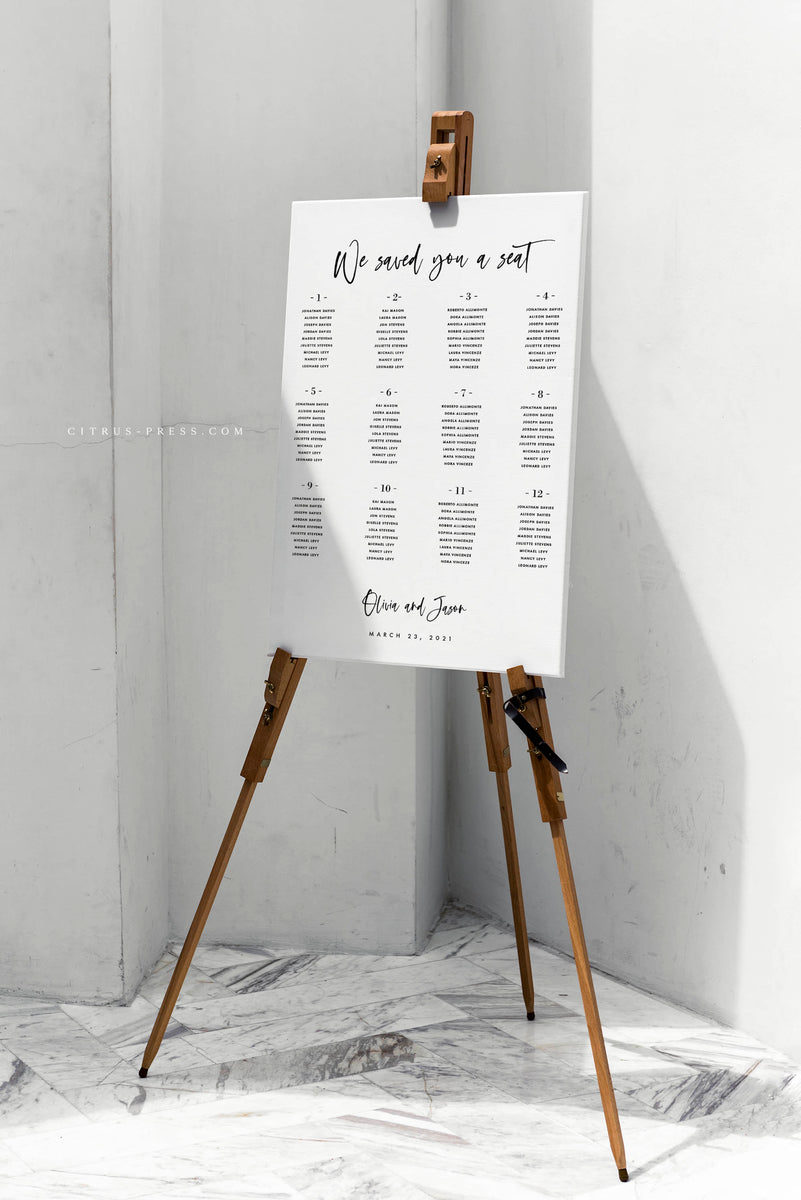 We saved you a seat
- 1 -
JONATHAN DAVIES
ALISON DAVIES
JOSEPH DAVIES
JORDAN DAVIES
MADDIE STEVENS
JULIETTE STEVENS
MICHAEL LEVY
NANCY LEVY
LEONARD LEVY
- 2 -
KAI MASON
LAURA MASON
JON STEVENS
GISELLE STEVENS
LOLA STEVENS
JULIETTE STEVENS
MICHAEL LEVY
NANCY LEVY
LEONARD LEVY
- 3 -
ROBERTO ALLIMONTE
DORA ALLIMONTE
ANGELA ALLIMONTE
ROBBIE ALLIMONTE
SOPHIA ALLIMONTE
MARIO VINCENZE
LAURA VINCENZE
MAYA VINCENZE
NORA VINCENZE
- 4 -
JONATHAN DAVIES
ALISON DAVIES
JOSEPH DAVIES
JORDAN DAVIES
MADDIE STEVENS
JULIETTE STEVENS
MICHAEL LEVY
NANCY LEVY
LEONARD LEVY
- 5 -
JONATHAN DAVIES
ALISON DAVIES
JOSEPH DAVIES
JORDAN DAVIES
MADDIE STEVENS
JULIETTE STEVENS
MICHAEL LEVY
NANCY LEVY
LEONARD LEVY
- 6 -
KAI MASON
LAURA MASON
JON STEVENS
GISELLE STEVENS
LOLA STEVENS
JULIETTE STEVENS
MICHAEL LEVY
NANCY LEVY
LEONARD LEVY
- 7 -
ROBERTO ALLIMONTE
DORA ALLIMONTE
ANGELA ALLIMONTE
ROBBIE ALLIMONTE
SOPHIA ALLIMONTE
MARIO VINCENZE
LAURA VINCENZE
MAYA VINCENZE
NORA VINCENZE
- 8 -
JONATHAN DAVIES
ALISON DAVIES
JOSEPH DAVIES
JORDAN DAVIES
MADDIE STEVENS
JULIETTE STEVENS
MICHAEL LEVY
NANCY LEVY
LEONARD LEVY
- 9 -
JONATHAN DAVIES
ALISON DAVIES
JOSEPH DAVIES
JORDAN DAVIES
MADDIE STEVENS
JULIETTE STEVENS
MICHAEL LEVY
NANCY LEVY
LEONARD LEVY
- 10 -
KAI MASON
LAURA MASON
JON STEVENS
GISELLE STEVENS
LOLA STEVENS
JULIETTE STEVENS
MICHAEL LEVY
NANCY LEVY
LEONARD LEVY
- 11 -
ROBERTO ALLIMONTE
DORA ALLIMONTE
ANGELA ALLIMONTE
ROBBIE ALLIMONTE
SOPHIA ALLIMONTE
MARIO VINCENZE
LAURA VINCENZE
MAYA VINCENZE
NORA VINCENZE
- 12 -
JONATHAN DAVIES
ALISON DAVIES
JOSEPH DAVIES
JORDAN DAVIES
MADDIE STEVENS
JULIETTE STEVENS
MICHAEL LEVY
NANCY LEVY
LEONARD LEVY
Olivia and Jason
MARCH 23, 2021
CITRUS-PRESS.COM